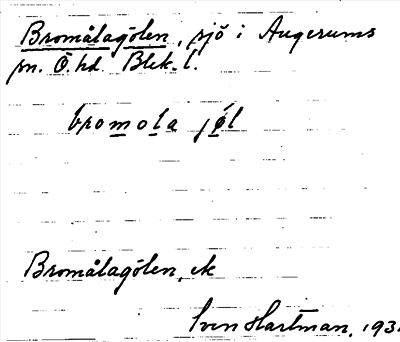 Bromålagölen, sjö i Augerums
sn. Ö. hd. Blek. l.
bromola jøl
Bromålagölen, ek
Sven Hartman, 193